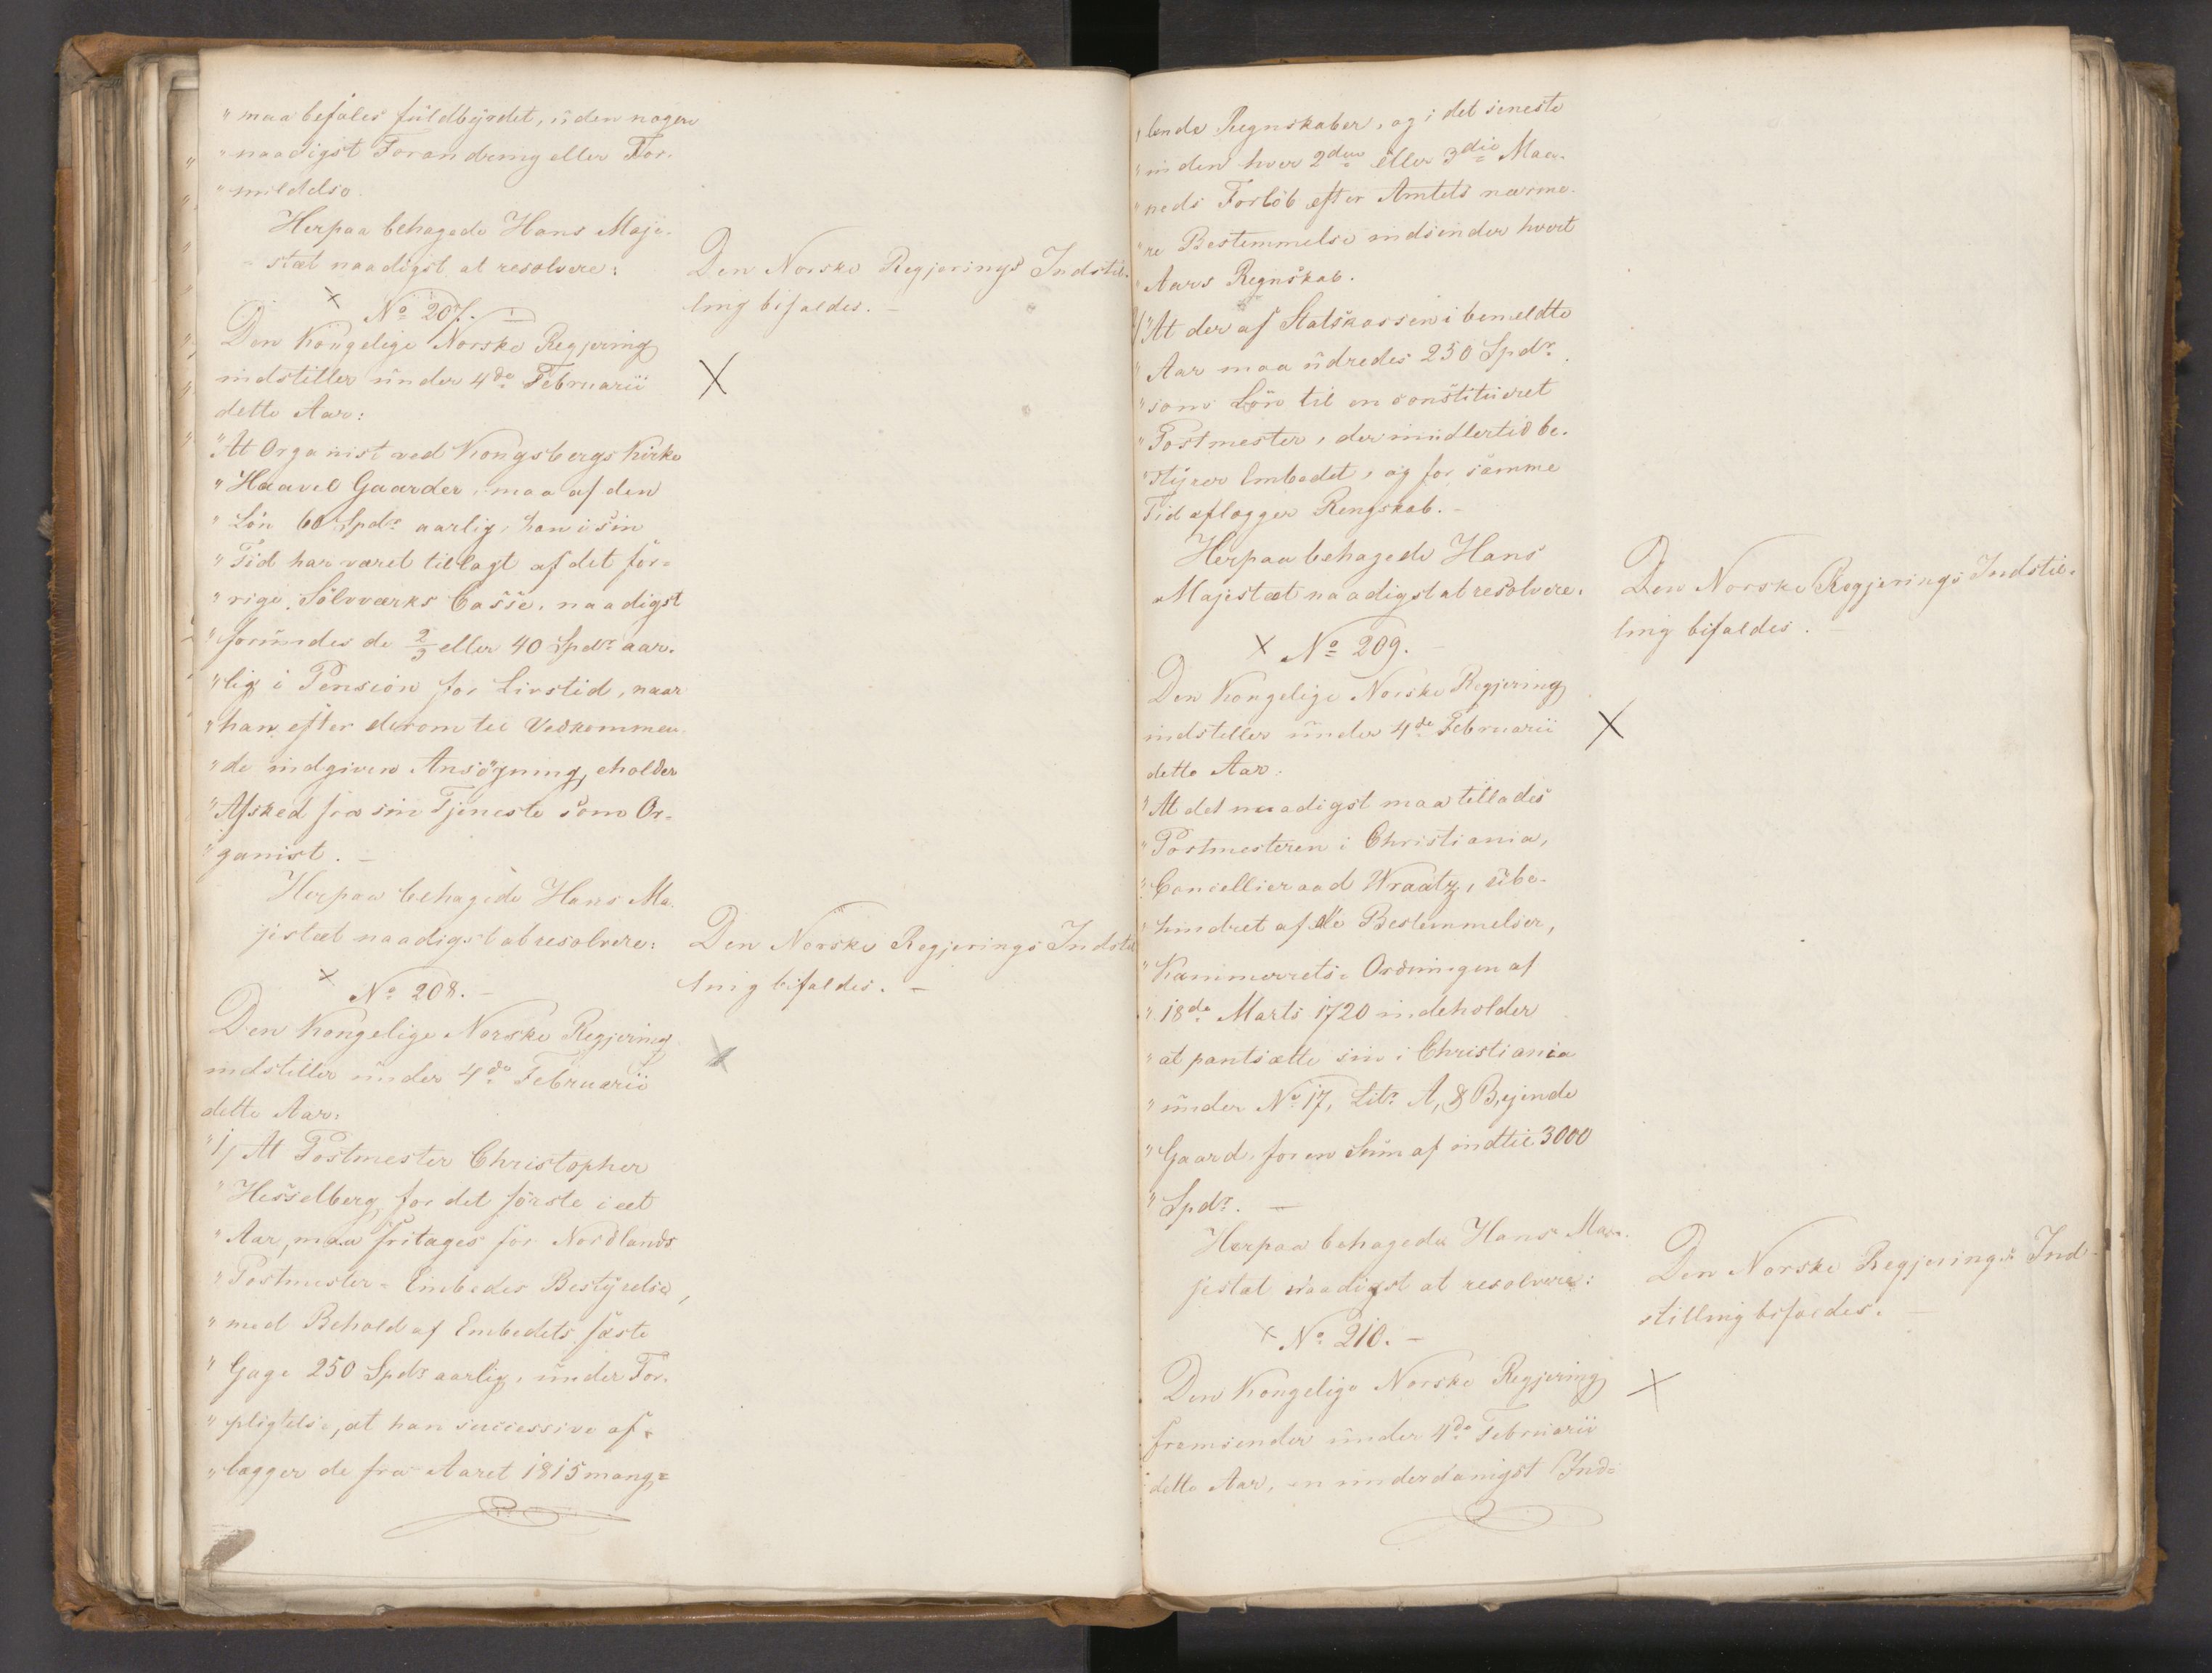 " maa befales fuldbyrdet, uden nogen
" naadigst Forandring eller For-
" mildelse.
Herpaa behagede Hans Maje-
stæt naadigst at resolvere:
Den Norske Regjerings Indstil-
ling bifaldes. -
X No 207. -
Den Kongelige Norske Regjering
indstiller under 4de Februarii
dette Aar:
X
" At Organist ved Kongsbergs Kirke
" Haavel Gaarder, maa af den
" Lön 60 Spdr aarlig, han i sin
" Tid har været tillagt af det for-
" rige Sölvværks Casse, naadigst
" forundes de 2/3 eller 40 Spdr aar-
" lig i Pension for Livstid, naar
" han efter derom til Vedkommen-
" de indgiven Ansögning, eholder
" Afsked fra sin Tjeneste som Or-
" ganist. -
Herpaa behagede Hans Ma-
jestæt naadigst at resolvere:
Den Norske Regjerings Indstil
ling bifaldes. -
X No 208. -
Den Kongelige Norske Regjering
indstiller under 4de Februarii
dette Aar:
X
" 1, At Postmester Christopher
" Hesselberg, for det förste i eet
" Aar, maa fritages for Nordlands
" Postmester- Embedes Bestyrelse,
" med Behold af Embedets faste
" Gage 250 Spdr aarlig, under For-
" pligtelse, at han successive af-
" lægger de fra Aaret 1815 mang-
" lende Regnskaber, og i det seneste
" inden hver 2den eller 3die Maa-
" neds Forlöb efter Amtets nærme-
" re Bestemmelse indsender hvert
" Aars Regnskab.
2/ " At der af Statskassen i bemeldte
" Aar maa udredes 250 Spdr.
" som Lön til en constitueret
" Postmester, der imidlertid be-
" styrer Embedet, og for samme
Tid aflægger Rengskab. -
Herpaa behagede Hans
Majestæt naadigst at resolvere.
Den Norske Regjerings Indstil-
ling bifaldes. -
X No 209. -
Den Kongelige Norske Regjering
indstiller under 4de Februarii
dette Aar:
X
" At det naadigst maa tillades
" Postmesteren i Christiania,
" Cancellieraad Wraatz, ube-
" hindret af de Bestemmelser,
" Kammerrets- Ordningen af
" 18de Marts 1720 indeholder
" at pantsætte sin i Christiania
" under No 17, Litr. A, & B, ejende
" Gaard, for en Sum af indtil 3000
" Spdr. -
Herpaa behagede Hans Ma-
jestæt naadigst at resolvere:
Den Norske Regjerings Ind-
stilling bifaldes. -
X No 210. -
Den Kongelige Norske Regjering
fremsender under 4de Februarii
dette Aar, en underdanigst Ind-
X